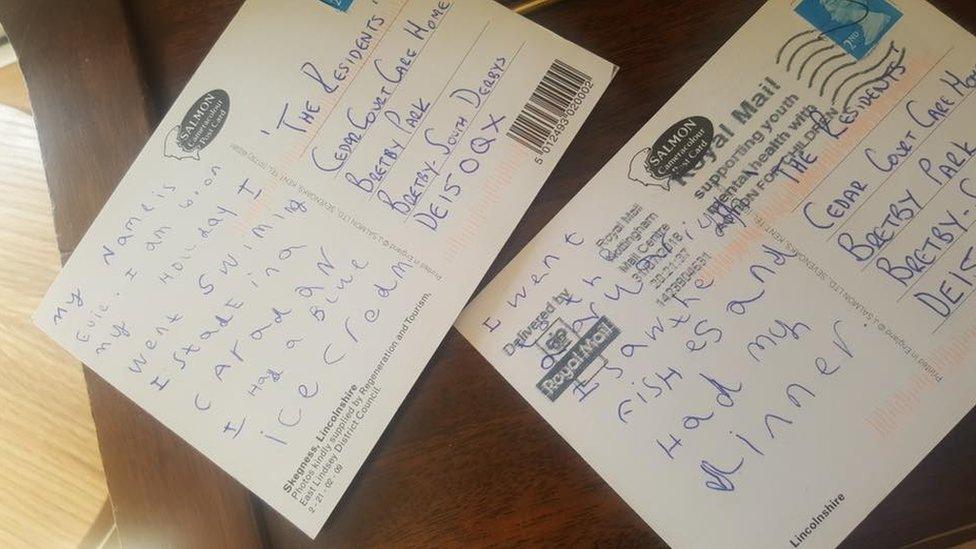 My Name is
Evie. I am 6
my Holiday I
went swiming
I stade in a
caravan
I Had a Blue
ice cream
SALMON
Cameracolour
Post Card
'THE RESIDENTS'
CEDAR COURT CARE HOME
BRETBY PARK
BRETBY - SOUTH DERBYS
DE15 0QX
5 012493 020002
Skegness, Lincolnshire
Photos kindly supplied by Regeneration and Tourism,
East Lindsey District Council.
2-21-02-09
Printed in England © J. SALMON LTD., SEVENOAKS, KENT
I went
I saw the
FISH es and
Had my
dinner
SALMON
Cameracolour
Post Card
2ND
Royal Mail
supporting youth
mental health with
ACTION FOR CHILDREN
Royal Mail
Nottingham
Mail Centre
Delivered by
Royal Mail
THE RESIDENTS
CEDAR COURT CARE HOME
BRETBY PARK
BRETBY-
DE15
Printed in England © J. SALMON LTD., SEVENOAKS, KENT
Lincolnshire